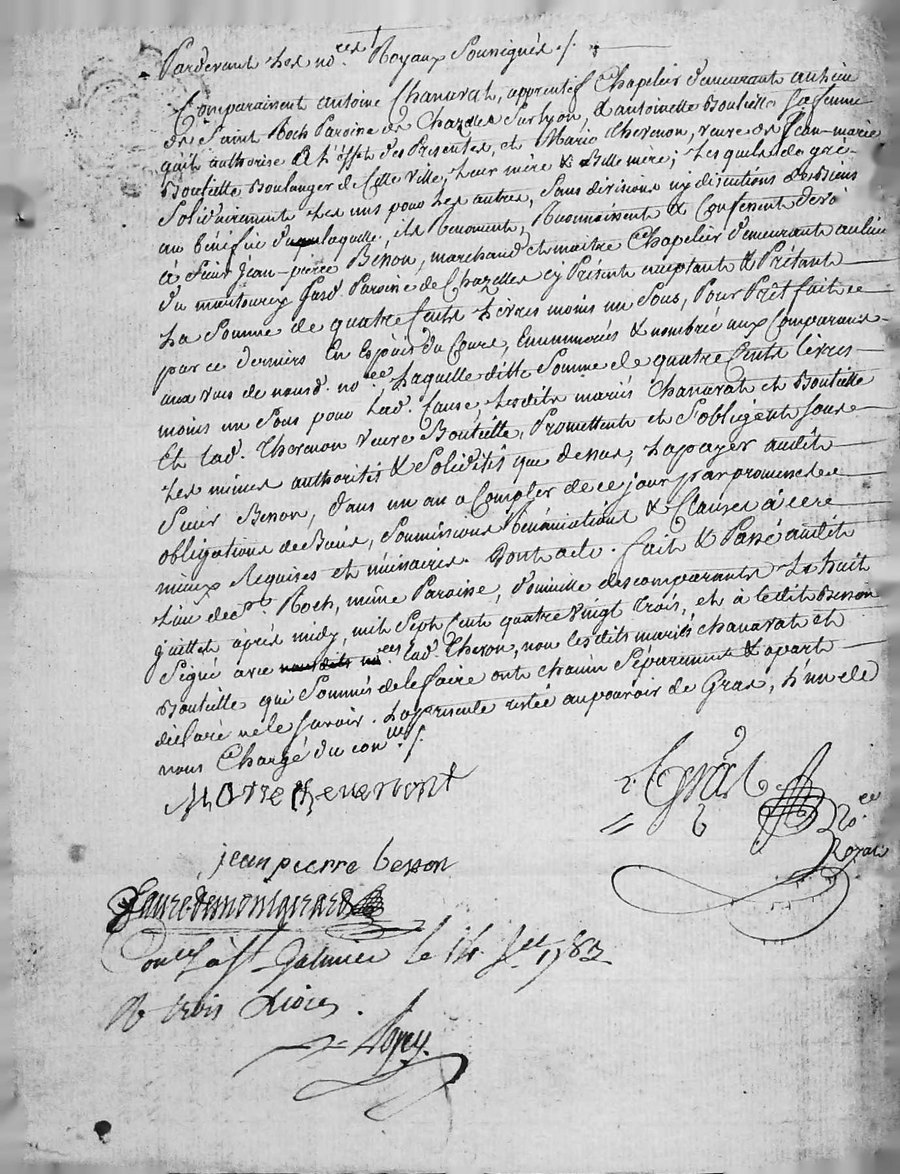 Pardevant Les no.res Royaux Soussignés /.
Comparaissent antoine Chanavat, apprentif Chapelier demeurant au lieu
de Saint Roch Paroisse de Chazelles sur lyon, & antoinette Bouteille Sa femme
quil authorise A L'effet des Presentes, et Marie Thevenon, veuve de Jean-marie
Bouteille Boulanger de Cette Ville, Leur mère & Belle mère; Lesquels de gré
Solidairement Les uns pour Les autres, Sans divisions ny discutions de Biens
au bénéfice duquel ils Renoncent, Reconnaissent & Confessent devoir
à Sieur Jean-pierre Besson, marchand et maitre Chapelier demeurant au lieu
du Paroisse de Chazelles cy Présent acceptant & Prétant
La Somme de quatre Cents Livres moins un Sous, Pour Prêt fait
par ce dernier En Espèces du Cours, Enummerés & nombrée aux Comparans
aux vus de nousd. no.res Laquelle ditte Somme de quatre Cents livres
moins un Sous pour Lad. Cause, Lesdits mariés Chanavat et Bouteille
Et Lad. Thevenon Veuve Bouteille, Promettent et S'obligent sous
Les mêmes authorités & Solidités que dessus, La payer audit
Sieur Besson, dans un an a Compter de ce jour par promesses
obligations de Biens, Soumissions Renonciations & Clauses à ce
mieux Requises et nécessaires. Dont acte. fait & Passé audit
Lieu de St. Roch, même Paroisse, domicille des comparants Le huit
juillet après midy, mil Sept Cent quatre vingt trois, et à Ledit Besson
Signé avec nousdits no.res Lad. non lesdits mariés chanavat et
Bouteille qui Sommés de le faire ont chacun Séparement & apart
déclaré ne le Savoir. La presente restée au pouvoir de Gras, L'un de
nous Chargé du con.lle /.
Marie thevenont
Gras
No.re
Royal
jean pierre besson
faure demontgirard
Con.llé à St Galmier le 14 J.let 1783
R trois Livres.